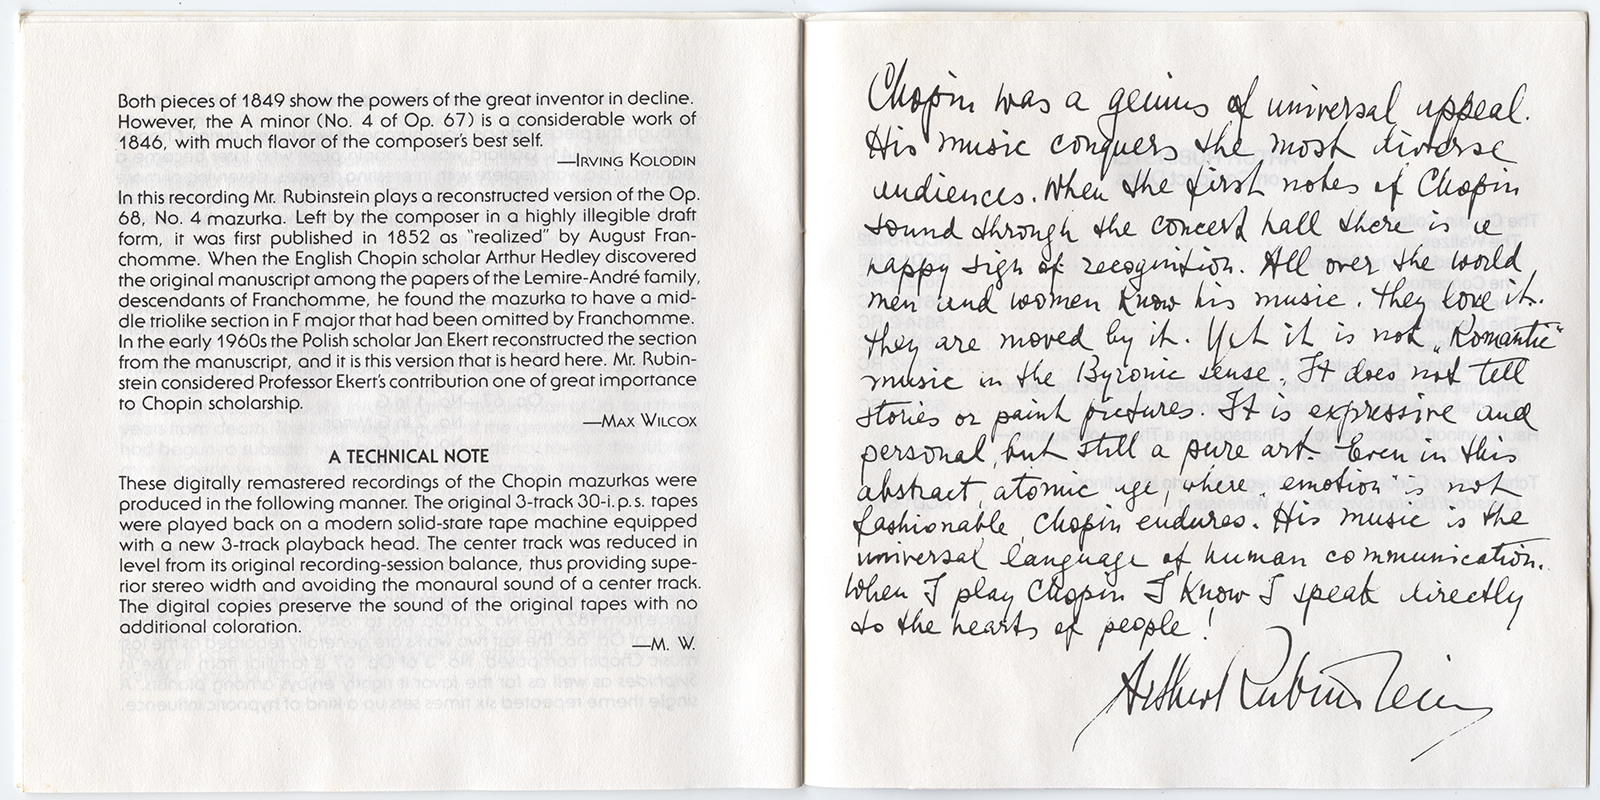 Both pieces of 1849 show the powers of the great inventor in decline.
However, the A minor (No. 4 of Op. 67) is a considerable work of
1846, with much flavor of the composer's best self.
—Irving Kolodin
In this recording Mr. Rubinstein plays a reconstructed version of the Op.
68, No. 4 mazurka. Left by the composer in a highly illegible draft
form, it was first published in 1852 as "realized" by August Fran-
chomme. When the English Chopin scholar Arthur Hedley discovered
the original manuscript among the papers of the Lemire-André family,
descendants of Franchomme, he found the mazurka to have a mid-
dle triolike section in F major that had been omitted by Franchomme.
In the early 1960s the Polish scholar Jan Ekert reconstructed the section
from the manuscript, and it is this version that is heard here. Mr. Rubin-
stein considered Professor Ekert's contribution one of great importance
to Chopin scholarship.
—Max Wilcox
A TECHNICAL NOTE
These digitally remastered recordings of the Chopin mazurkas were
produced in the following manner. The original 3-track 30-i.p.s. tapes
were played back on a modern solid-state tape machine equipped
with a new 3-track playback head. The center track was reduced in
level from its original recording-session balance, thus providing supe-
rior stereo width and avoiding the monaural sound of a center track.
The digital copies preserve the sound of the original tapes with no
additional coloration.
—M. W.
Chopin was a genius of universal appeal.
His music conquers the most diverse
audiences. When the first notes of Chopin
sound through the concert hall there is a
happy sign of recognition. All over the world
men and women know his music. They love it.
They are moved by it. Yet it is not „Romantic"
music in the Byronic sense. It does not tell
stories or paint pictures. It is expressive and
personal, but still a pure art. Even in this
abstract atomic age, where emotion is not
fashionable, Chopin endures. His music is the
universal language of human communication.
When I play Chopin I know I speak directly
to the hearts of people!
Arthur Rubinstein